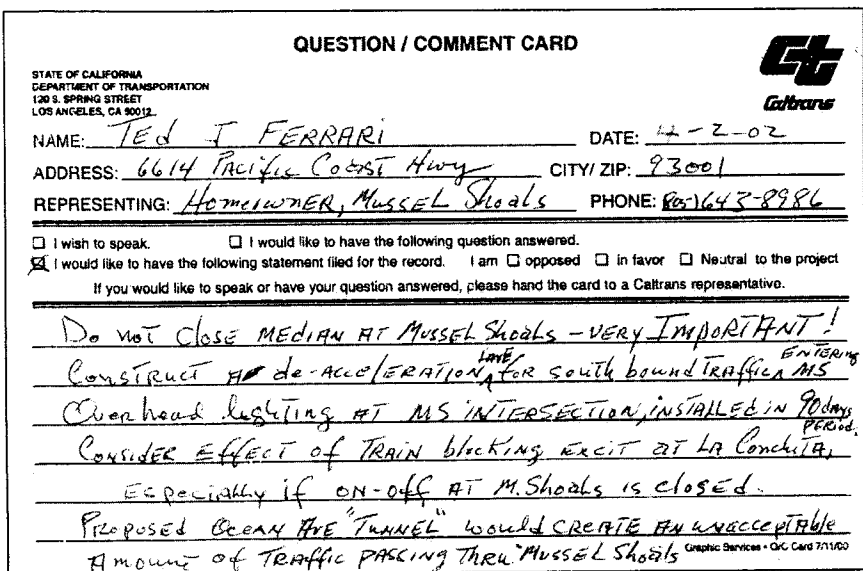 QUESTION / COMMENT CARD
STATE OF CALIFORNIA
DEPARTMENT OF TRANSPORTATION
120 S. SPRING STREET
LOS ANGELES, CA 90012
Caltrans
NAME: TEd I FERRARI DATE: 4-2-02
ADDRESS: 6614 PACIfic COAST Hwy CITY/ ZIP: 93001
REPRESENTING: HOMEOWNER, MUSSEL Shoals PHONE: 805)643-8986
☐ I wish to speak. ☐ I would like to have the following question answered.
☒ I would like to have the following statement filed for the record. I am ☐ opposed ☐ in favor ☐ Neutral to the project
If you would like to speak or have your question answered, please hand the card to a Caltrans representative.
Do not Close MEDIAN AT MUSSEL Shoals - VERY IMPORTANT!
CONSTRUCT A de-AccelERATION LANE for south bound TRAffic ENTERING MS
Overhead lighting AT MS INTERSECTION, INSTALLED IN 90 days PERIOD.
CONSIDER EffECT of TRAIN blocking EXCIT AT LA ConchITA,
Especially if ON-off AT M. Shoals is closed.
PROPOSED OCEAN AVE "TUNNEL" would CREATE AN UNACCEPTABLE
Amount of TRAffic PASSING THRU MUSSEL Shoals
Graphic Services • Q/C Card 7/11/00